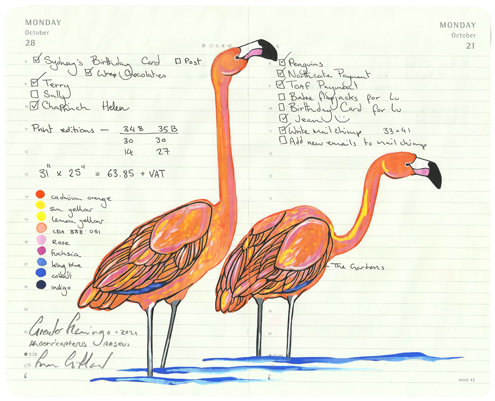 MONDAY
October
28
Sydney's Birthday Card
Post
Wrap Chocolates
Terry
Sally
Chaffinch Helen
Print editions — 34B 35B
30 30
14 27
31" x 25" = 63.85 + VAT
cadmium orange
lemon yellow
Rose
fuchsia
king blue
cobalt
indigo
Greater Flamingo - 2021
phoenicopterus roseus
MONDAY
October
21
Penguins
Northcote Payment
TOAF Payment
Bake flapjacks for Lu
Birthday Card for Lu
Jean
Write Mailchimp 33 x 41
Add new emails to mailchimp
The Gardens
week 43